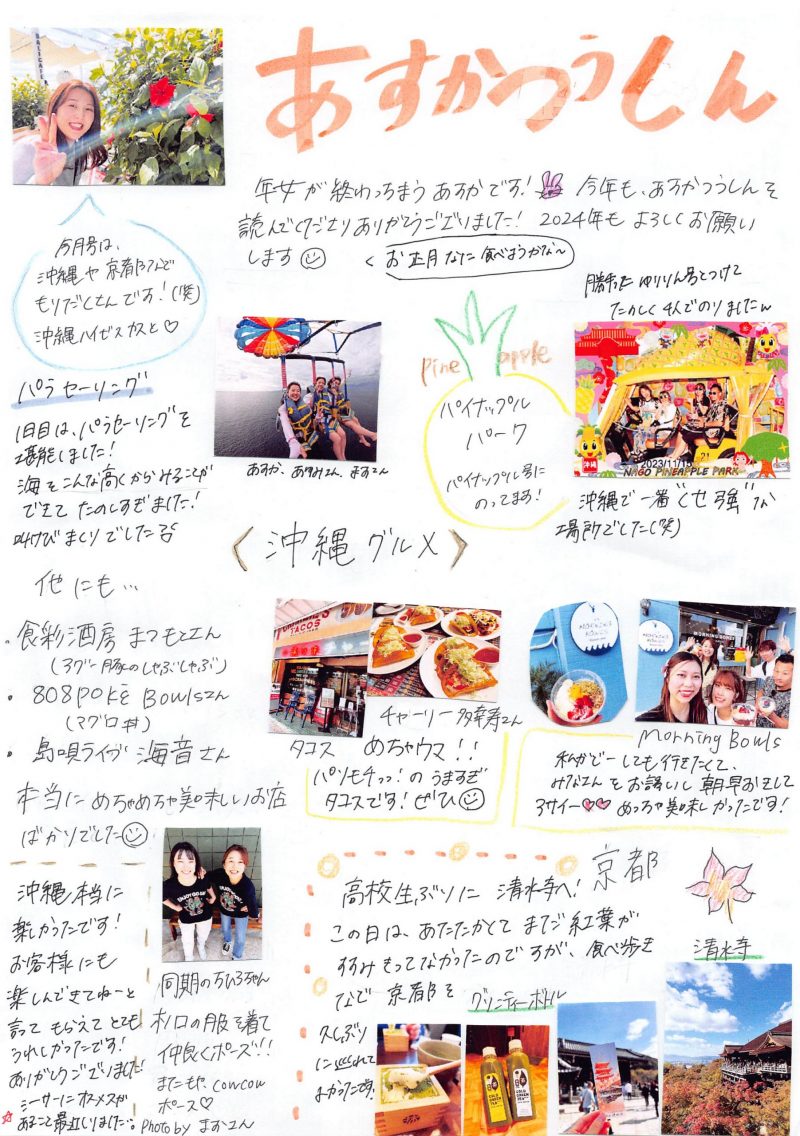 あすかつうしん
年女が終わっちまうあすかです! 今年も、あすかつうしんを
読んでくださりありがとうございました! 2024年も よろしくお願い
します
お正月なに食べようかな〜
今月号は、
沖縄や京都など
もりだくさんです!(笑)
沖縄ハイビスカスと♡
パラセーリング
1日目は、パラセーリングを
堪能しました!
海をこんな高くからみることが
できて たのしすぎました!
叫びまくりでした
あすか、あすみさん、ますさん
pine apple
パイナップル
パーク
パイナップル号に
のってます!
勝手に ゆりりん号とつけて
たのしく4人でのりましたw
2023/11/15
NAGO PINEAPPLE PARK
沖縄
沖縄で一番"クセ強"な
場所でした(笑)
〈沖縄グルメ〉
他にも…
・食彩酒房 まつもとさん
(アグー豚のしゃぶしゃぶ)
・808 POKE Bowlsさん
(マグロ丼)
・島唄ライブ 海音さん
本当に めちゃめちゃ美味しいお店
ばかりでした
TACOS
チャーリー多幸寿さん
タコス めちゃウマ!!
パリもち っ!のうますぎ
タコスです!ぜひ
MORNING BOWLS
Morning Bowls
私がどーしても行きたくて、
みなさんをお誘いし 朝早おきして
アサイー♡♡ めっちゃ美味しかったです!
沖縄本当に
楽しかったです!
お客様にも
楽しんできてねーと
言って もらえて とても
うれしかったです!
ありがとうございました!
シーサーにオスメスが
あること最近しりました。
同期のちひろちゃん
オソロの服を着て
仲良くポーズ!!
またもや、cowcow
ポーズ♡
Photo by ますさん
京都
高校生ぶりに 清水寺へ!
この日は、あたたかくて まだ紅葉が
すすみもってなかったのですが、食べ歩き
などで 京都を
グリーンティーボトル
久しぶり
に巡れて
よかったです!
COLD
GREEN
TEA
清水寺